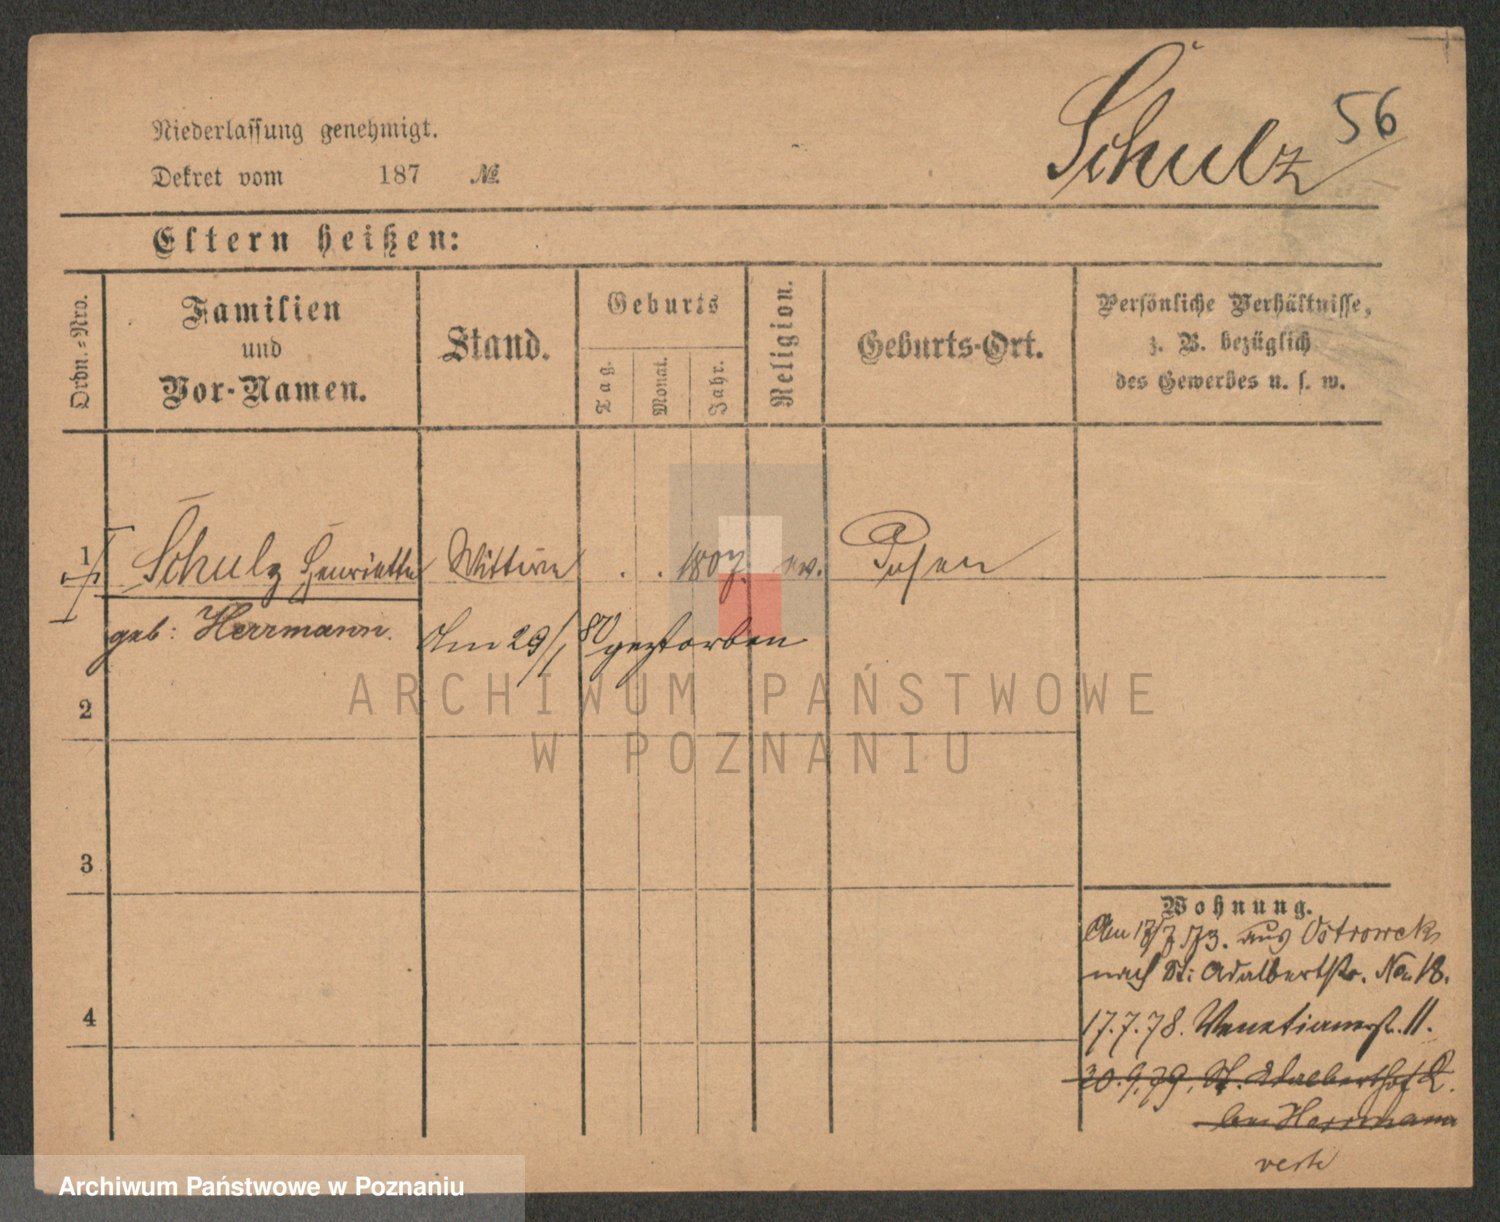 Schulz 56
Niederlassung genehmigt.
Dekret vom 187 №
Eltern heißen:
Ordn.-Nro.
Familien
und
Vor-Namen.
Stand.
Geburts
Tag.
Monat.
Jahr.
Religion.
Geburts-Ort.
Persönliche Verhältnisse,
z. B. bezüglich
des Gewerbes u. s. w.
1 Schulz Henriette Wittwe . . 1807. ev. Posen
geb: Herrmann. Am 29/1 80 gestorben
ARCHIWUM PAŃSTWOWE
W POZNANIU
2
3
4
Wohnung.
Am 73. aus Ostrowek
nach St: Adalbertstr. No. 18.
17.7.78. Venetianerstr. 11.
30.9.79. St. Adalberthof
bei Herrmann
Archiwum Państwowe w Poznaniu